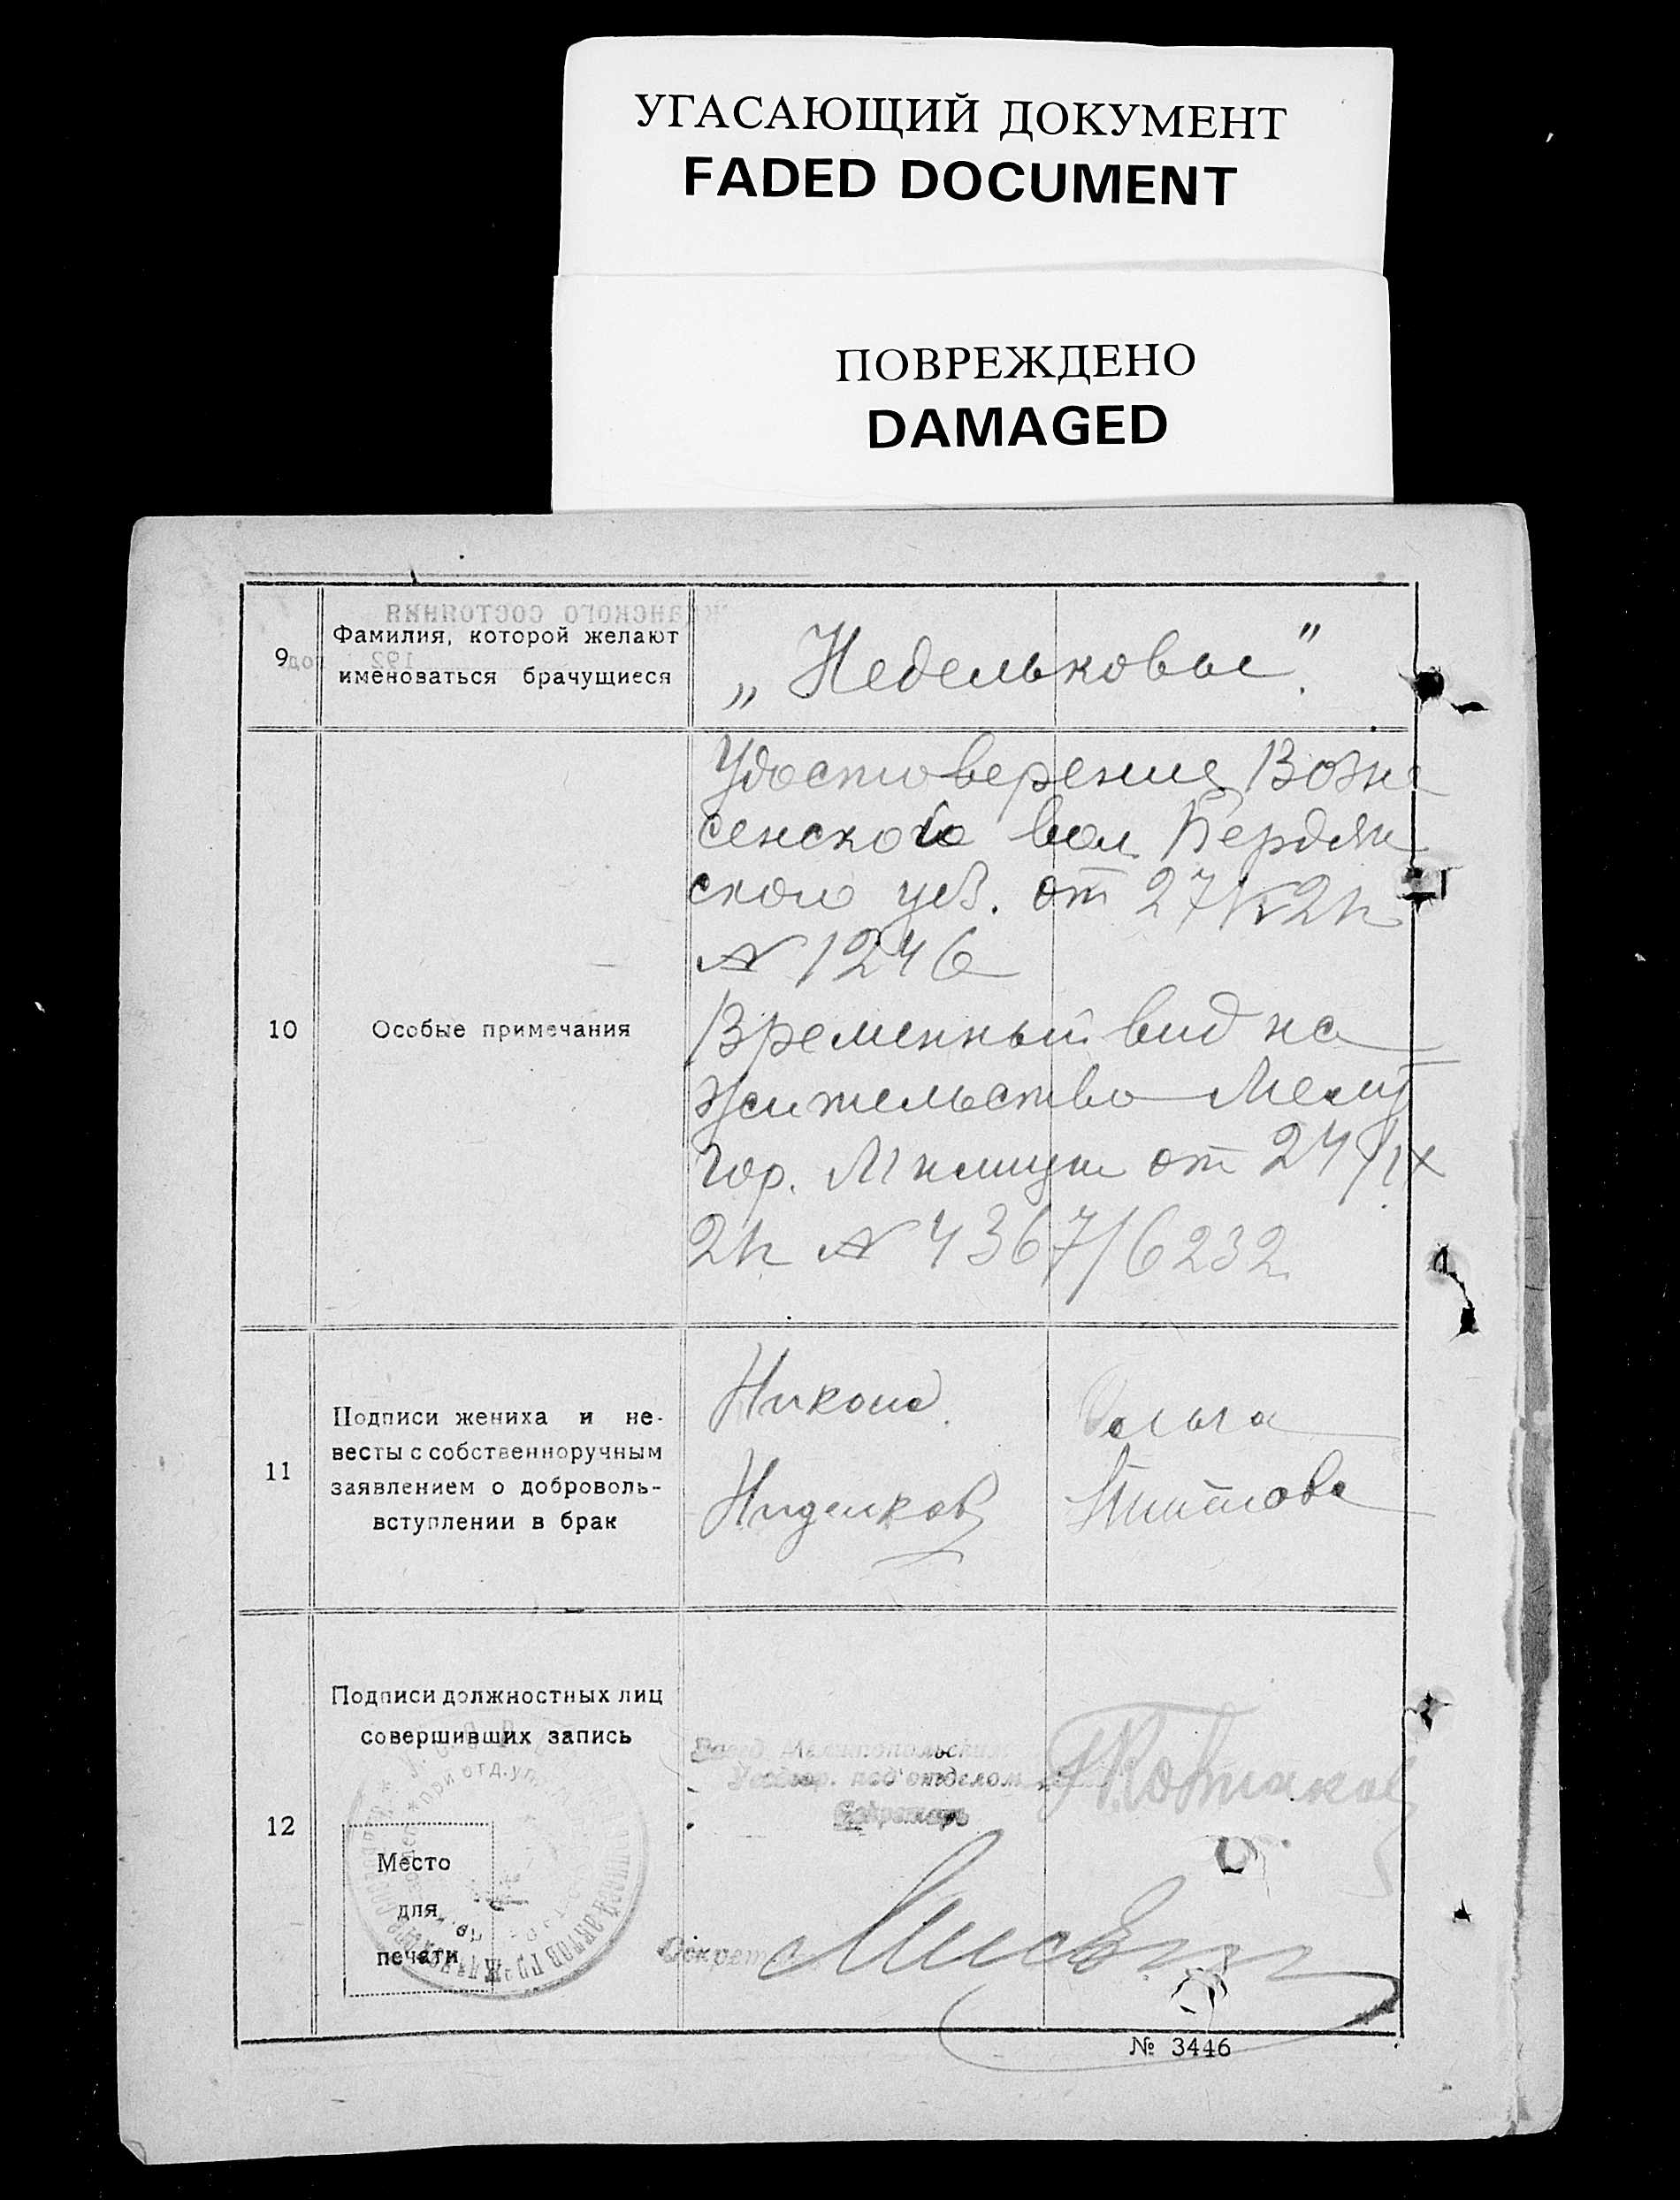 УГАСАЮЩИЙ ДОКУМЕНТ
FADED DOCUMENT
ПОВРЕЖДЕНО
DAMAGED
9
Фамилия, которой желают
именоваться брачущиеся
„Недельковы".
10
Особые примечания
Удостоверение Возне
сенского вол Бердян
ского уез. от 27/
№ 1246
Временный вид на
жительство Мелит
гор. Милиции от 24/IX
№ 4367/6232
11
Подписи жениха и не-
весты с собственноручным
заявлением о доброволь-
вступлении в брак
Никон
Ниделков
Ольга
12
Подписи должностных лиц
совершивших запись
Завед. Мелитопольским
под'отделом
Секретарь
Место
для
печати
№ 3446